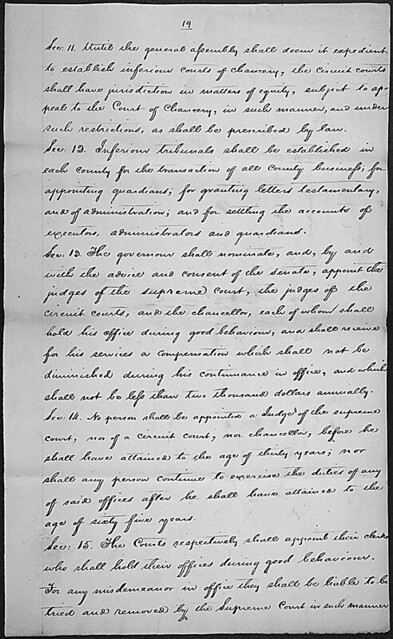 19
Sec. 11. Until the general assembly shall deem it expedient
to establish inferious courts of chancery, the circuit courts
shall have jurisdiction in matters of equity, subject to ap-
peal to the Court of Chancery, in such manner, and under
such restrictions, as shall be prescribed by law.
Sec. 12. Inferious tribunals shall be established in
each county for the transaction of all County business; for
appointing guardians; for granting letters testamentary,
and of administration; and for settling the accounts of
executors, administrators and guardians.
Sec. 13. The governour shall nominate, and, by and
with the advice and consent of the senate, appoint the
judges of the supreme court, the judges of the
circuit courts, and the chancellor, each of whom shall
hold his office during good behaviour, and shall receive
for his services a compensation which shall not be
diminished during his continuance in office, and which
shall not be less than two thousand dollars annually.
Sec. 14. No person shall be appointed a Judge of the supreme
court, nor of a circuit court, nor chancellor, before he
shall have attained to the age of thirty years; nor
shall any person continue to exercise the duties of any
of said offices after he shall have attained to the
age of sixty five years.
Sec. 15. The Courts respectively shall appoint their clerks
who shall hold their offices during good behaviour.
For any misdemeanor in office they shall be liable to be
tried and removed by the Supreme Court in such manner